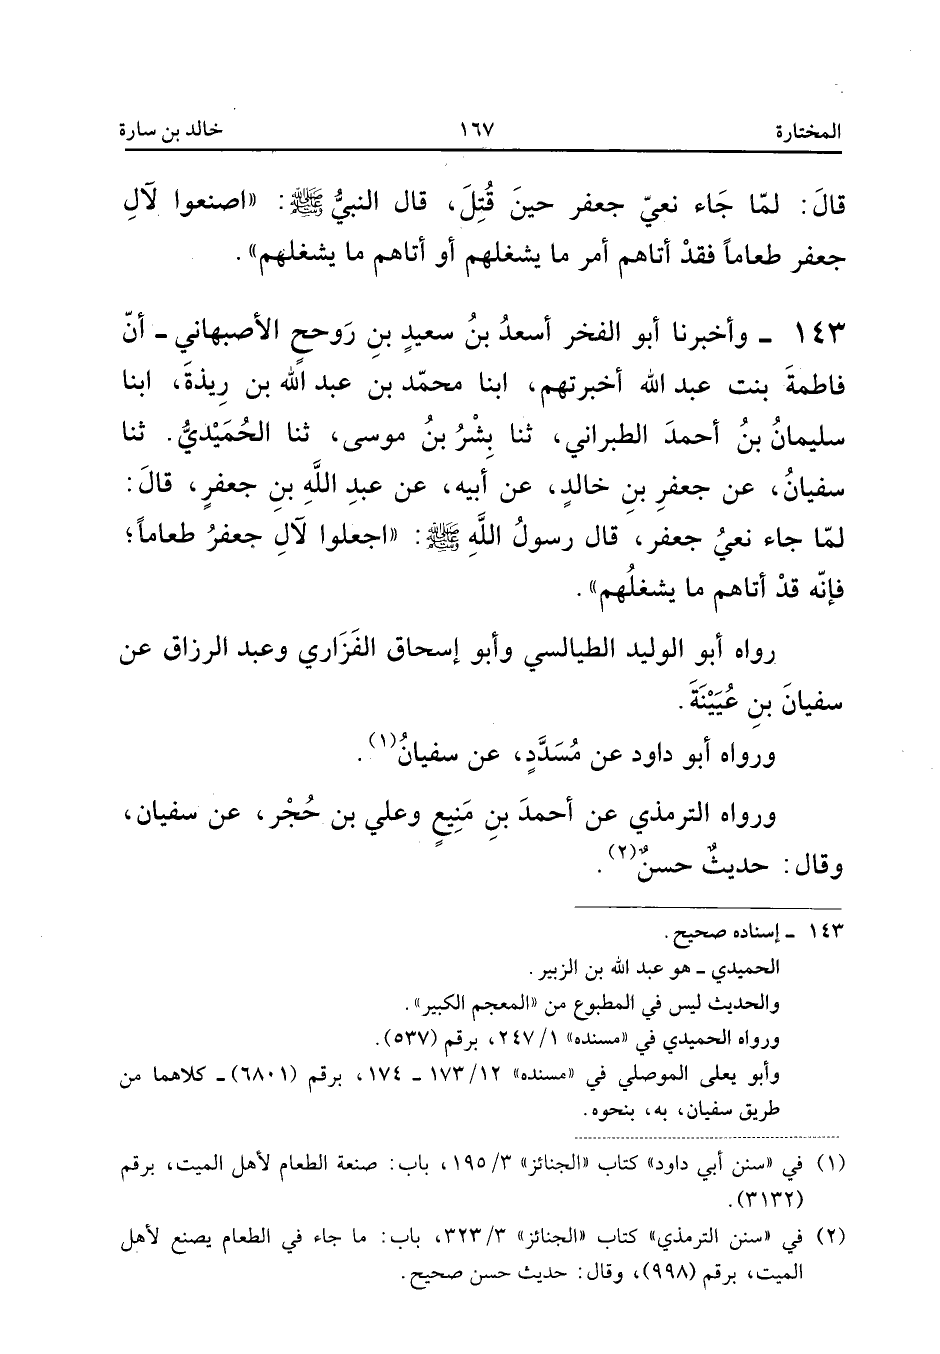 المختارة ١٦٧ خالد بن سارة
قالَ: لمّا جَاء نعيّ جعفر حينَ قُتِلَ، قال النبيُّ ﷺ: «اصنعوا لآلِ
جعفر طعاماً فقدْ أتاهم أمر ما يشغلهم أو أتاهم ما يشغلهم».
١٤٣ ـ وأخبرنا أبو الفخر أسعدُ بنُ سعيدٍ بنِ رَوححٍ الأصبهاني ـ أنّ
فاطمةَ بنت عبد الله أخبرتهم، ابنا محمّد بن عبد الله بن رِيذةَ، ابنا
سليمانُ بنُ أحمدَ الطبراني، ثنا بِشْرُ بنُ موسى، ثنا الحُمَيْديُّ. ثنا
سفيانُ، عن جعفرِ بنِ خالدٍ، عن أبيه، عن عبدِ اللَّهِ بنِ جعفرٍ، قالَ:
لمّا جاء نعيُ جعفر، قال رسولُ اللَّهِ ﷺ: «اجعلوا لآلِ جعفرُ طعاماً؛
فإنّه قدْ أتاهم ما يشغلُهم».
رواه أبو الوليد الطيالسي وأبو إسحاق الفَزَاري وعبد الرزاق عن
سفيانَ بنِ عُيَيْنَةَ.
ورواه أبو داود عن مُسَدَّدٍ، عن سفيانُ(١).
ورواه الترمذي عن أحمدَ بنِ مَنِيعٍ وعلي بن حُجْر، عن سفيان،
وقال: حديثٌ حسنٌ(٢).
١٤٣ ـ إسناده صحيح.
الحميدي ـ هو عبد الله بن الزبير.
والحديث ليس في المطبوع من «المعجم الكبير».
ورواه الحميدي في «مسنده» ١/ ٢٤٧، برقم (٥٣٧).
وأبو يعلى الموصلي في «مسنده» ١٢/ ١٧٣ ـ ١٧٤، برقم (٦٨٠١) ـ كلاهما من
طريق سفيان، به، بنحوه.
(١) في «سنن أبي داود» كتاب «الجنائز» ٣/ ١٩٥، باب: صنعة الطعام لأهل الميت، برقم
(٣١٣٢).
(٢) في «سنن الترمذي» كتاب «الجنائز» ٣/ ٣٢٣، باب: ما جاء في الطعام يصنع لأهل
الميت، برقم (٩٩٨)، وقال: حديث حسن صحيح.